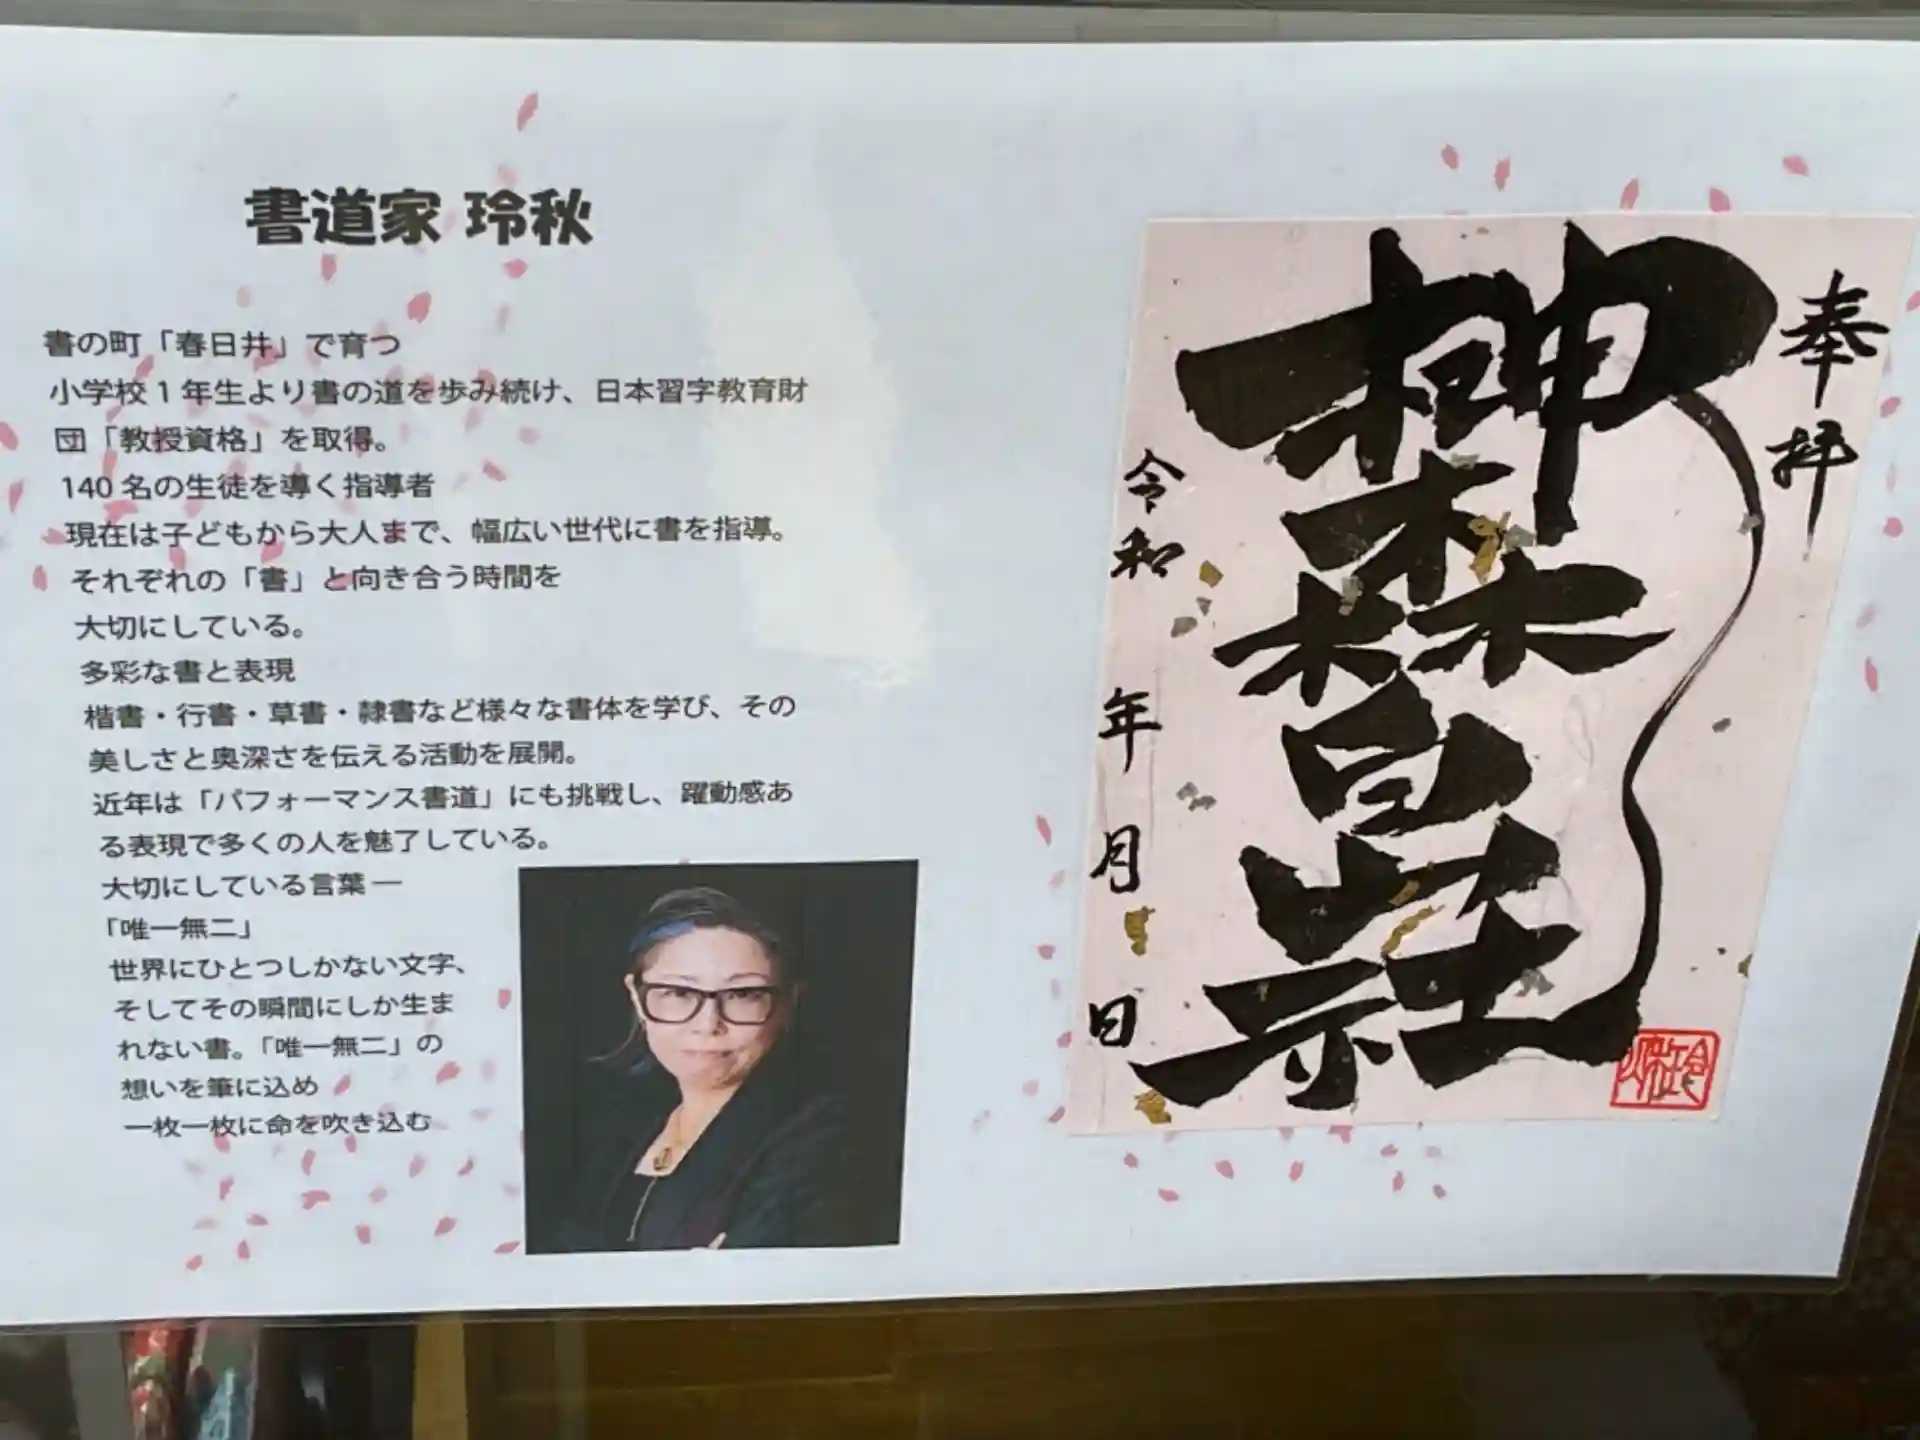 書道家 玲秋
書の町「春日井」で育つ
小学校1年生より書の道を歩み続け、日本習字教育財
団「教授資格」を取得。
140名の生徒を導く指導者
現在は子どもから大人まで、幅広い世代に書を指導。
それぞれの「書」と向き合う時間を
大切にしている。
多彩な書と表現
楷書・行書・草書・隷書など様々な書体を学び、その
美しさと奥深さを伝える活動を展開。
近年は「パフォーマンス書道」にも挑戦し、躍動感あ
る表現で多くの人を魅了している。
大切にしている言葉 ―
「唯一無二」
世界にひとつしかない文字、
そしてその瞬間にしか生ま
れない書。「唯一無二」の
想いを筆に込め
一枚一枚に命を吹き込む
奉拝
榊森白山社
令和 年 月 日
玲秋